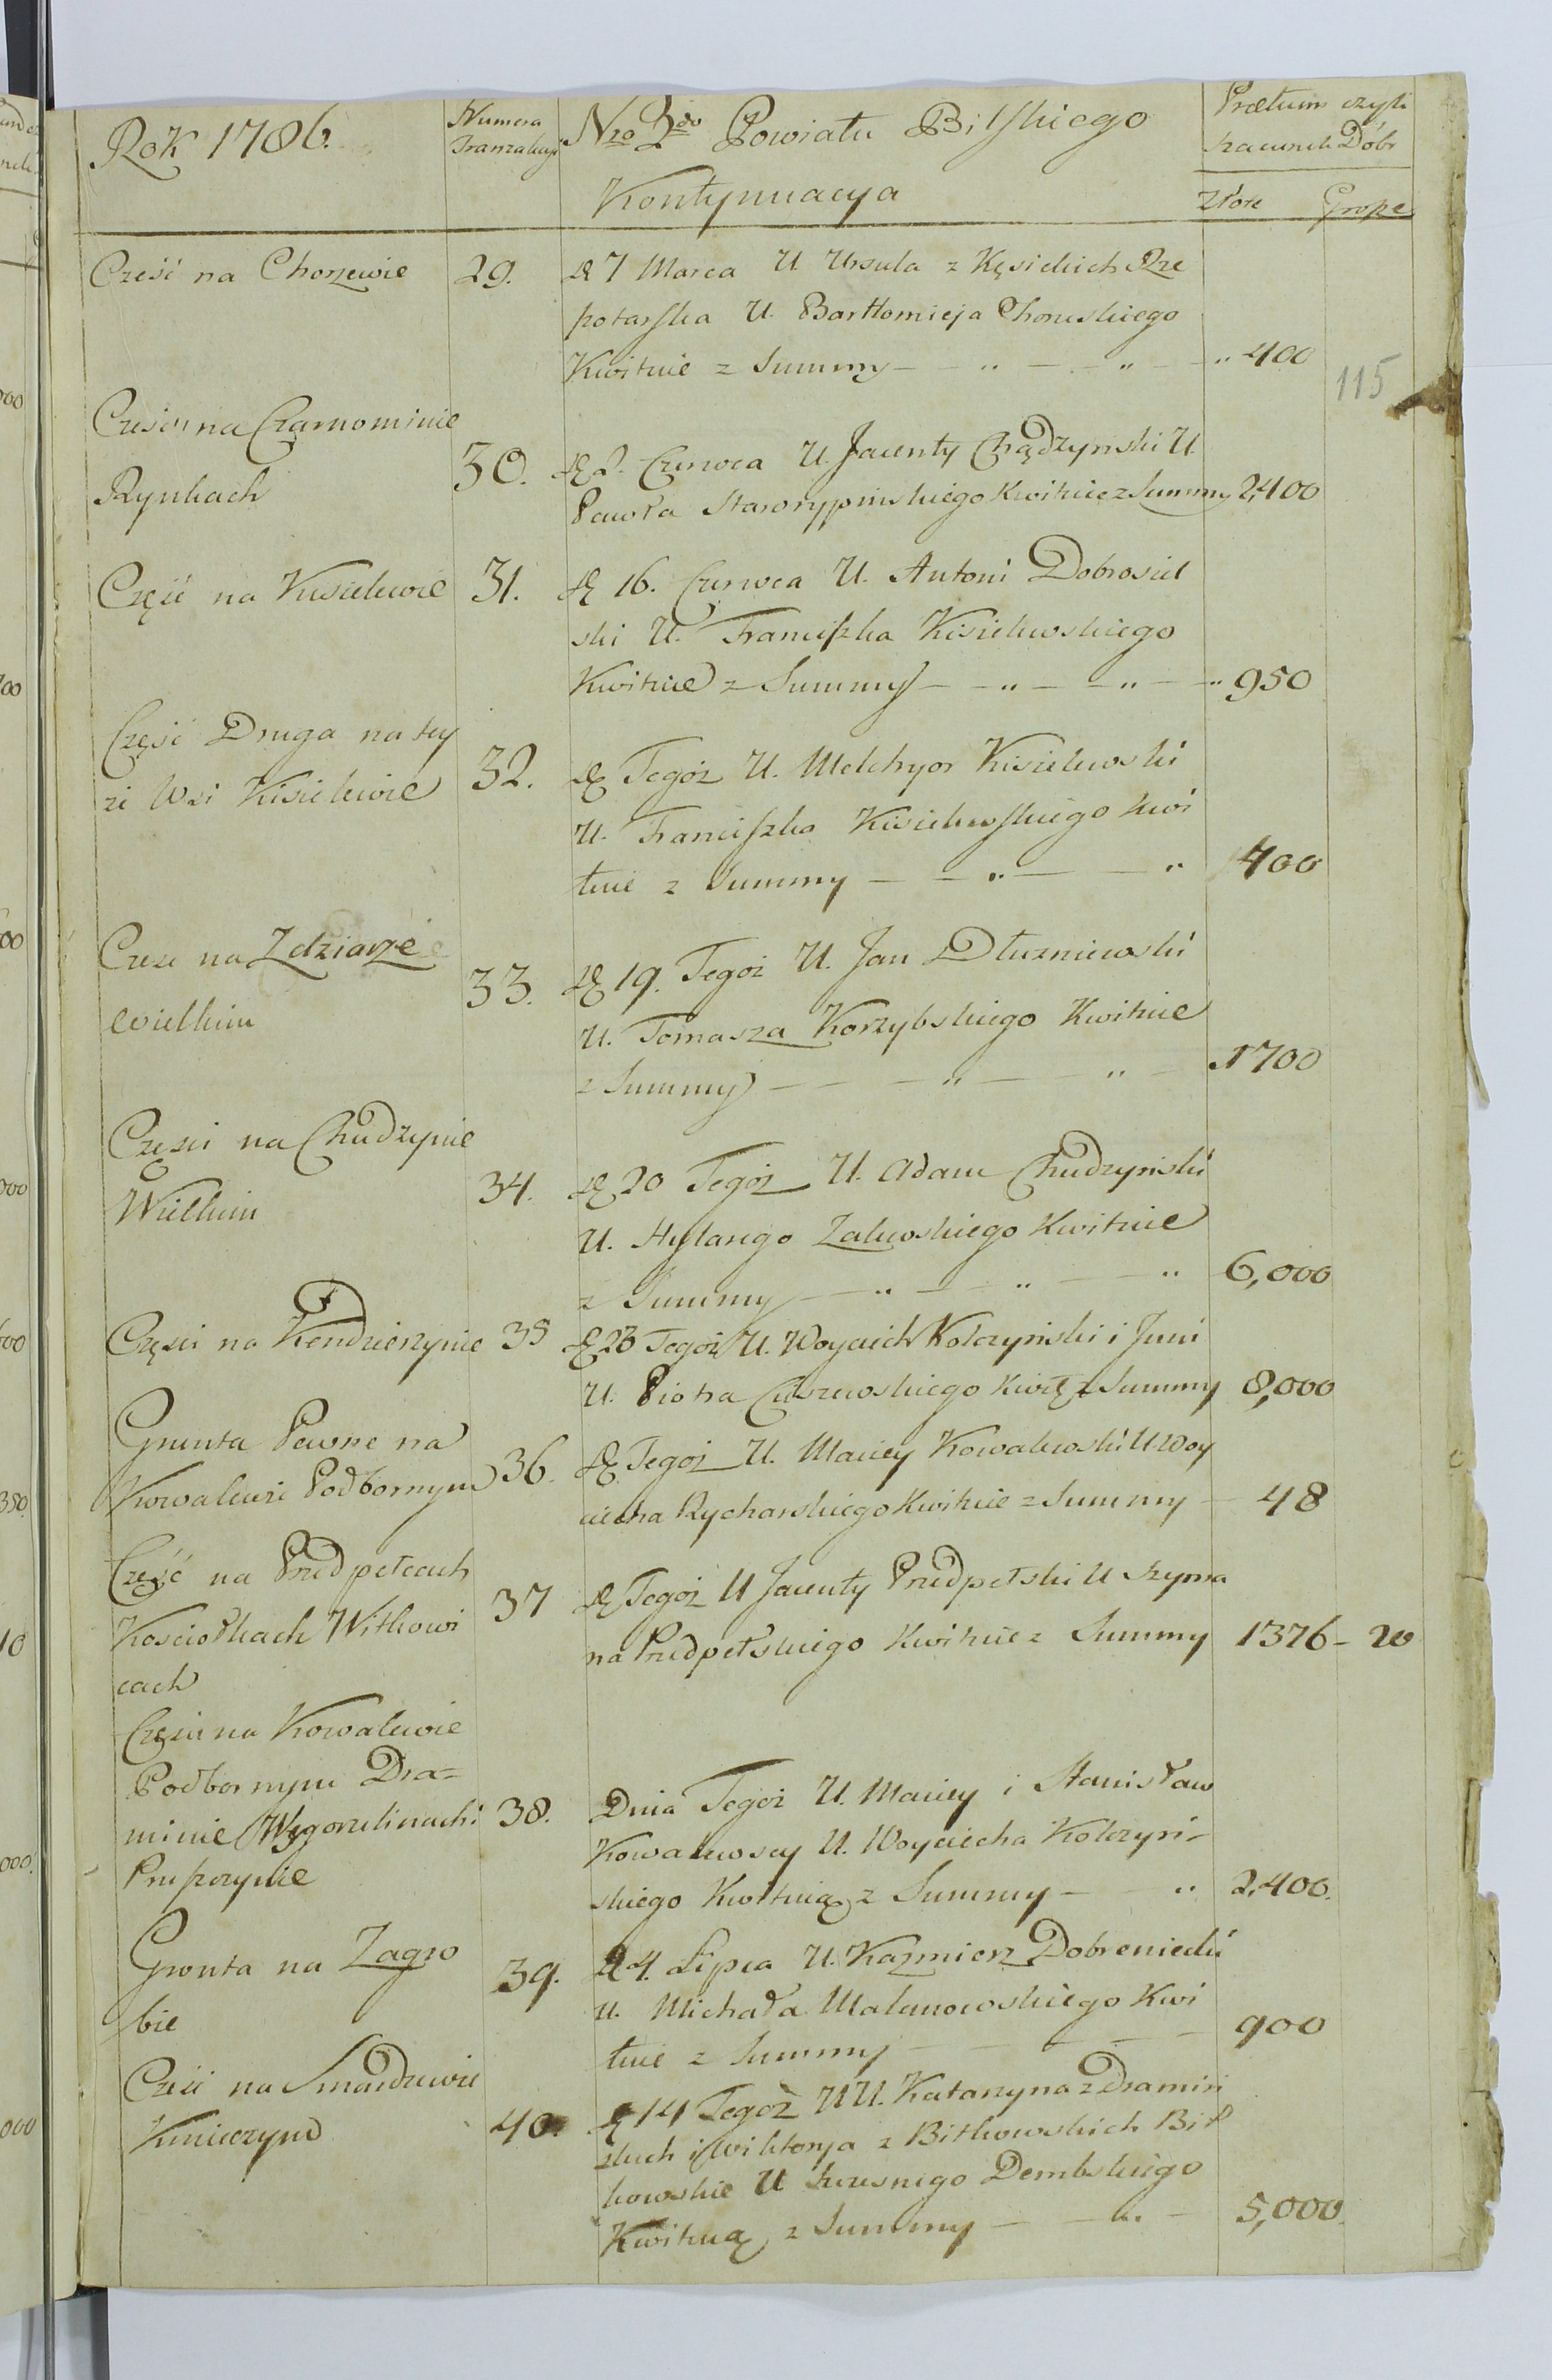 Rok 1786.
Numera
Tranzakcyi
Nro 2do Powiatu Bilskiego
Kontynuacya
Prætium czyli
szacunek Dóbr
Złote Grosze
115
Cześć na Chorzewie
29.
D 7 Marca U Ursula z Kęsickich Rze
szotarska U. Bartłomieja Choruskiego
Kwituie z Summy — 400
Cześci na Czarnominie
Rynkach
30.
D 2. Czerwca U. Jacenty Chądzynski U.
Pawła Starorypinskiego Kwituie z Summy 2,400
Część na Kisielewie
31.
D 16. Czerwca U. Antoni Dobrosiel
ski U. Franciszka Kisielewskiego
Kwituie z Summy — 950
Część Druga na tey
ze Wsi Kisielewie
32.
D Tegoż U. Melchyor Kisielewski
U. Franciszka Kisielewskiego kwi
tuie z Summy — 400
Czesc na Zdziarze
wielkim
33.
D 19. Tegoż U. Jan Dłuzniewski
U. Tomasza Korzybskiego Kwituie
z Summy — 1700
Części na Chudzynie
Wielkim
34.
D 20 Tegoż U. Adam Chudzyński
U. Hylarego Zalewskiego Kwituie
z Summy — 6,000
Części na Kendzierzynie
35
D 23 Tegoż U. Woyciech Kolczyński i Juni
U. Piotra Ciszewskiego kwit z Summy 8,000
Grunta Pewne na
Kowalewie Podbornym
36.
D Tegoż U. Maciey Kowalewski U. Woy
ciecha Rycharskiego Kwituie z Summy — 48
Część na Przedpełcach
Kosciołkach Witkowi
cach
37
D Tegoż U Jacenty Przedpełski U Szymo
na Przedpełskiego Kwituie z Summy 1376 - 20
Części na Kowalewie
Podbornym Dra=
minie Węgorzelinach i
Pruszczynie
38.
Dnia Tegoż U. Maciey i Stanisław
Kowalewscy U. Woyciecha Kolczyń-
skiego Kwituią z Summy — 2,400.
Gronta na Zagro
bie
39.
D 4. Lipca U. Kazmierz Dobreniecki
U. Michała Malanowskiego Kwi
tuie z Summy — 900
Cześć na Smardzewie
Kmieczym
40.
D 14 Tegoż UU. Katarzyna z Dramiń
skich i Wiktorya z Bitkowskich Bit
kowskie U Szczesnego Dembskiego
Kwituią z Summy — 5,000.